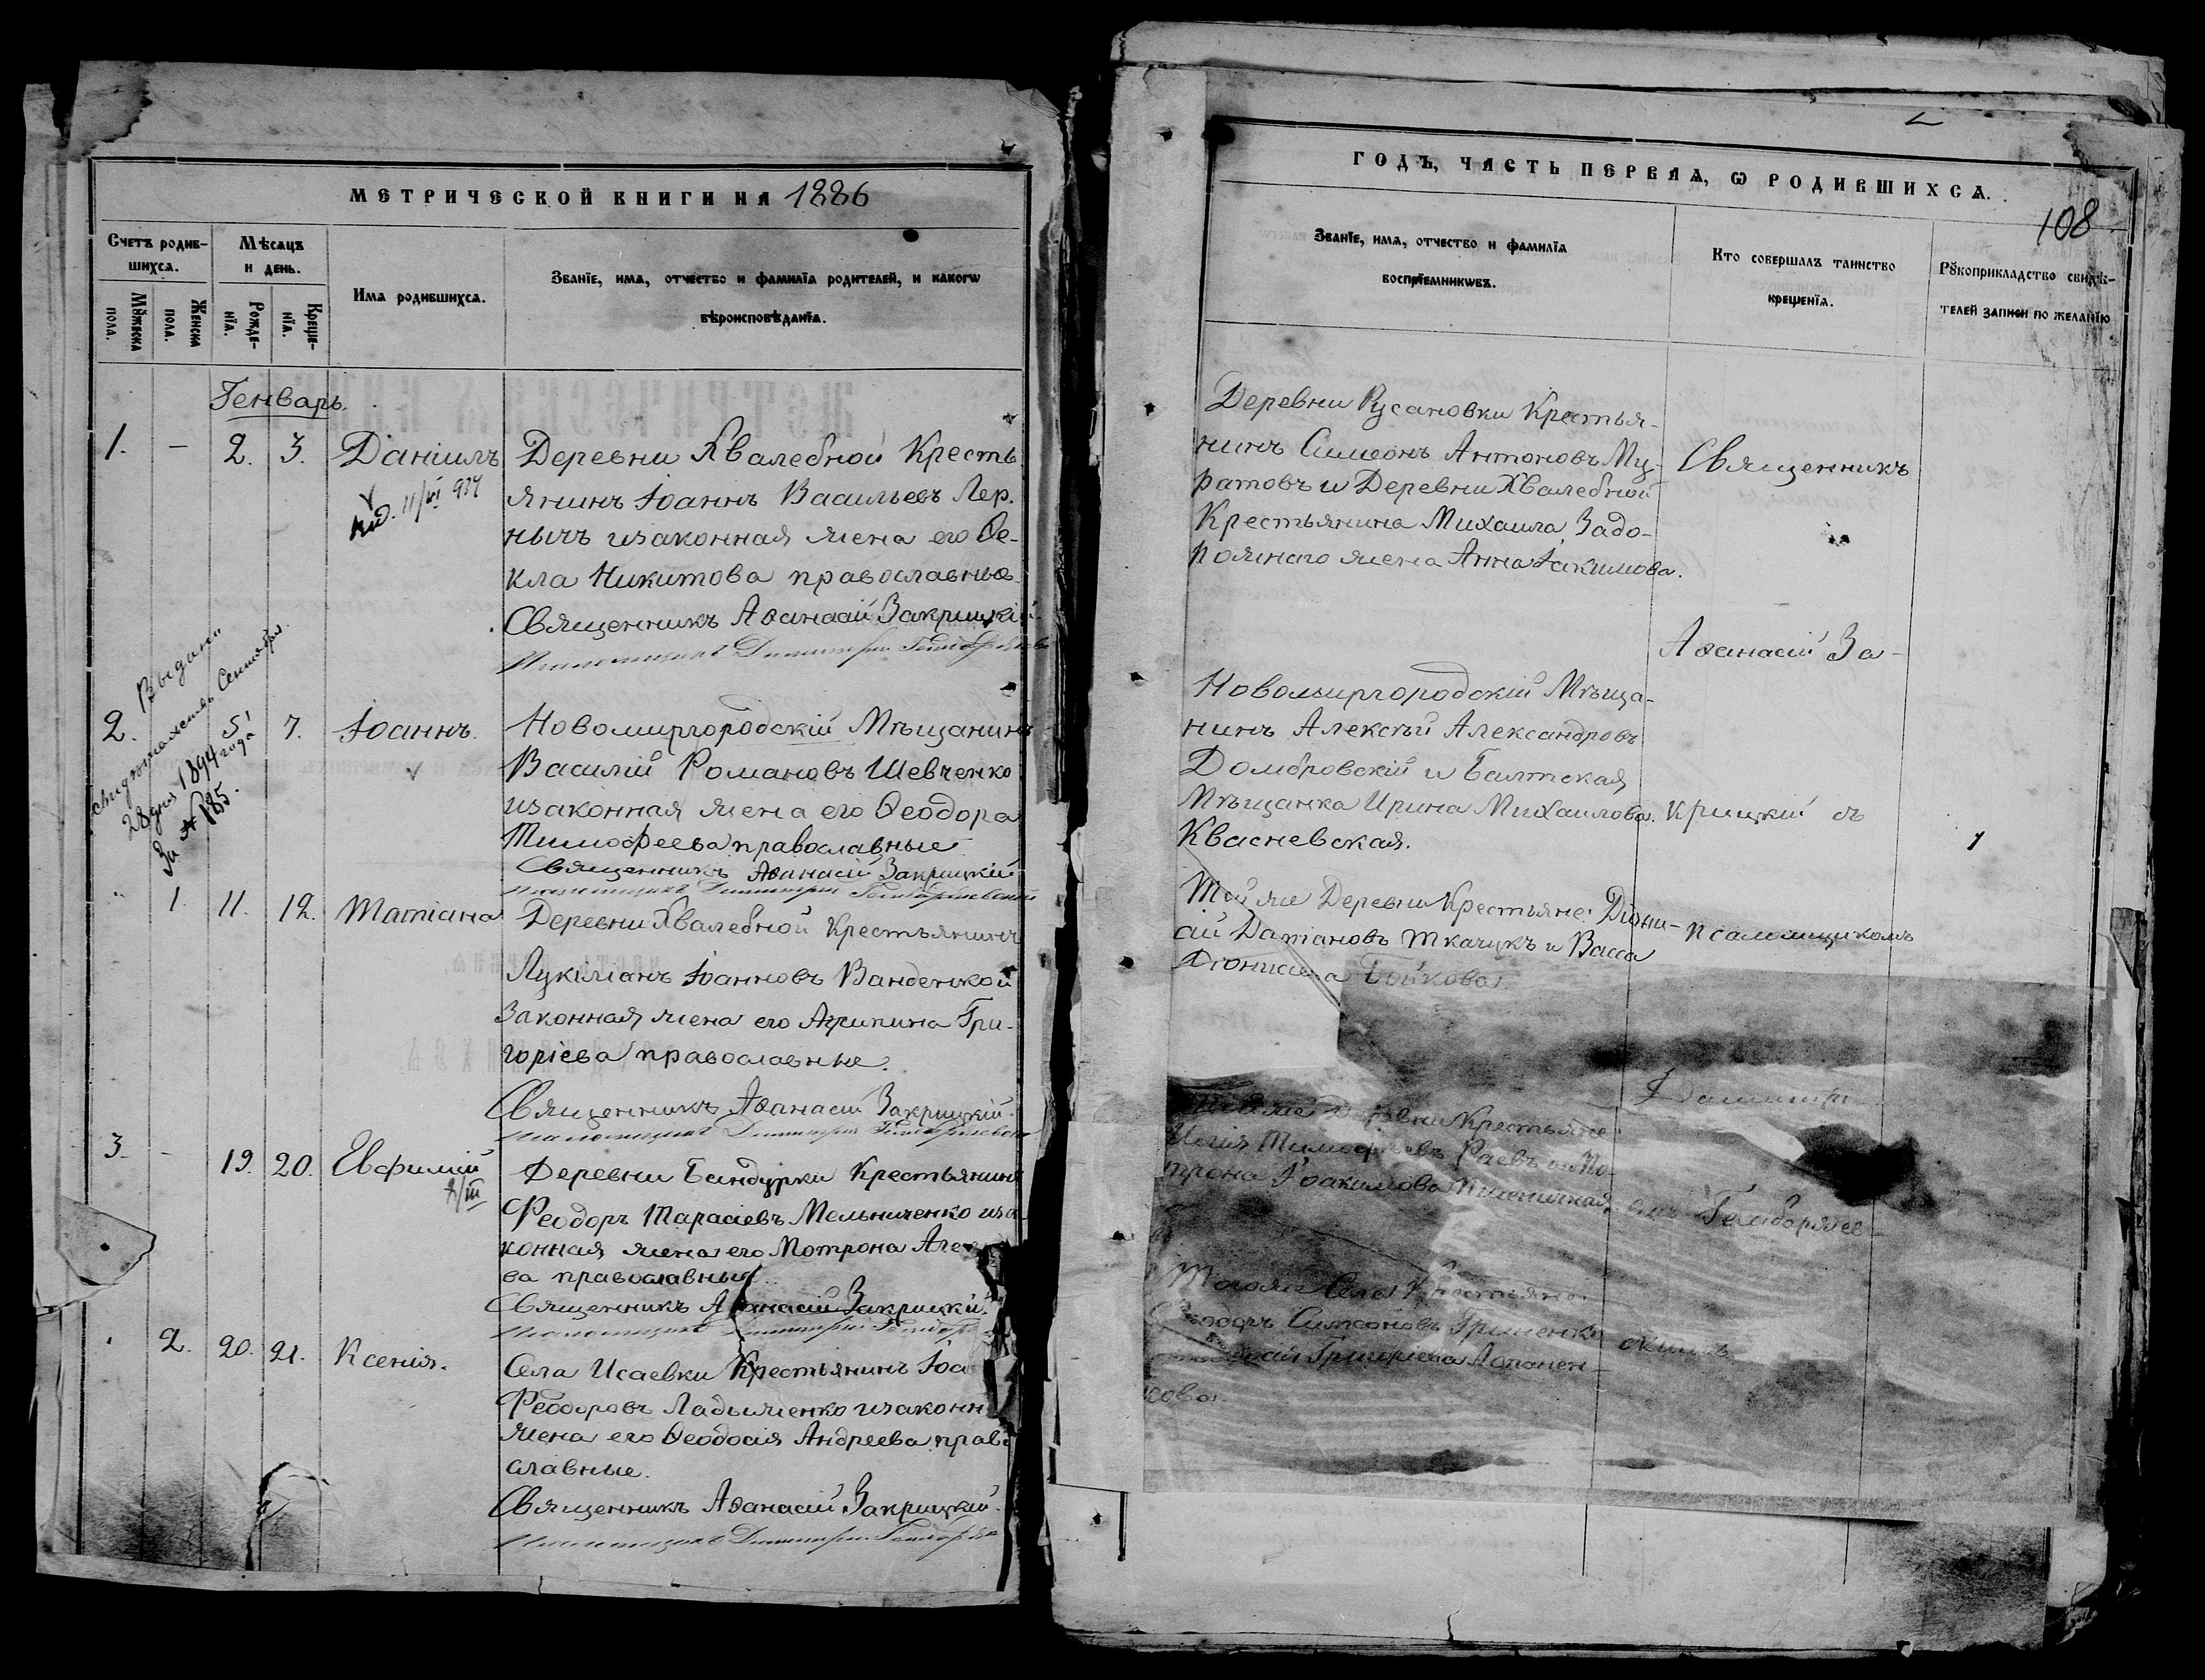 МЕТРИЧЕСКОЙ КНИГИ НА 1886
Счетъ родив-
шихся.
Мѣсяцъ
и день.
Мꙋжеска
пола.
Женска
пола.
Рожде-
нїя.
Креще-
нїя.
Имя родившихся.
Званїе, имя, отчество и фамилїя родителей, и какогѡ
вѣроисповѣданїя.
Генварь.
1. - 2. 3. Даніилъ
11/VI 937
Деревни Хвалебной Кресть
янинъ Іоаннъ Васильевъ
законная жена его Ѳе-
кла Никитова православные
Священникъ Аѳанасій Закрицкій
Псаломщикъ Димитрій
Выдано
свидѣтельство Сентября
28 дня 1894 года
За № 185.
2. 5 7. Іоаннъ.
Новомиргородскій Мѣщанинъ
Василій Романовъ Шевченко
изаконная жена его Ѳеодора
Тимофеева православные
Священникъ Аѳанасій Закрицкій
Псаломщикъ Димитрій
1. 11. 12. Татіана
Деревни Хвалебной Крестьянинъ
Лукиліанъ Іоанновъ
Законная жена его Агрипина Гри-
горіева православные.
Священникъ Аѳанасій Закрицкій
Псаломщикъ Димитрій
3. - 19. 20. Евфимій
Деревни Бандурки Крестьянинъ
Феодоръ Тарасіевъ Мельниченко иза
конная жена его Мотрона
ва православные
Священникъ Аѳанасій Закрицкій
Псаломщикъ Димитрій
2. 20. 21. Ксенія.
Села Исаевки Крестьянинъ Іоа
Феодоровъ Ладыженко изаконн
жена его Ѳеодосія Андреева право
славные.
Священникъ Аѳанасій Закрицкій
Псаломщикъ Димитрій
ГОДЪ, ЧАСТЬ ПЕРВАЯ, Ѡ РОДИВШИХСЯ.
108
Званїе, имя, отчество и фамилїя
воспрїемникѡвъ.
Кто совершалъ таинство
крещенїя.
Рꙋкоприкладство свидѣ-
телей записи по желанїю
Деревни Русановки Крестья-
нинъ Симеонъ Антоновъ Му-
ратовъ и Деревни Хвалебной
Крестьянина Михаила Задо-
рожнаго жена Анна Іакимова.
Священникъ
Аѳанасій За-
Новомиргородскій Мѣща-
нинъ Алексѣй Александровъ
Домбровскій и Балтская
Мѣщанка Ирина Михаилова
Квасневская.
крицкій съ
Той же Деревни Крестьяне: Діони-
сій Даміановъ Ткачукъ и Васса
Діонисіева Бойкова
псаломщикомъ
Димитрі-
Той же Деревни Крестьяне:
Тимофѣевъ Раевъ и
Іоакимова
емъ
Тогоже Села Крестьяне
Феодоръ Симеоновъ Гриненко
Григоріева
кова
скимъ